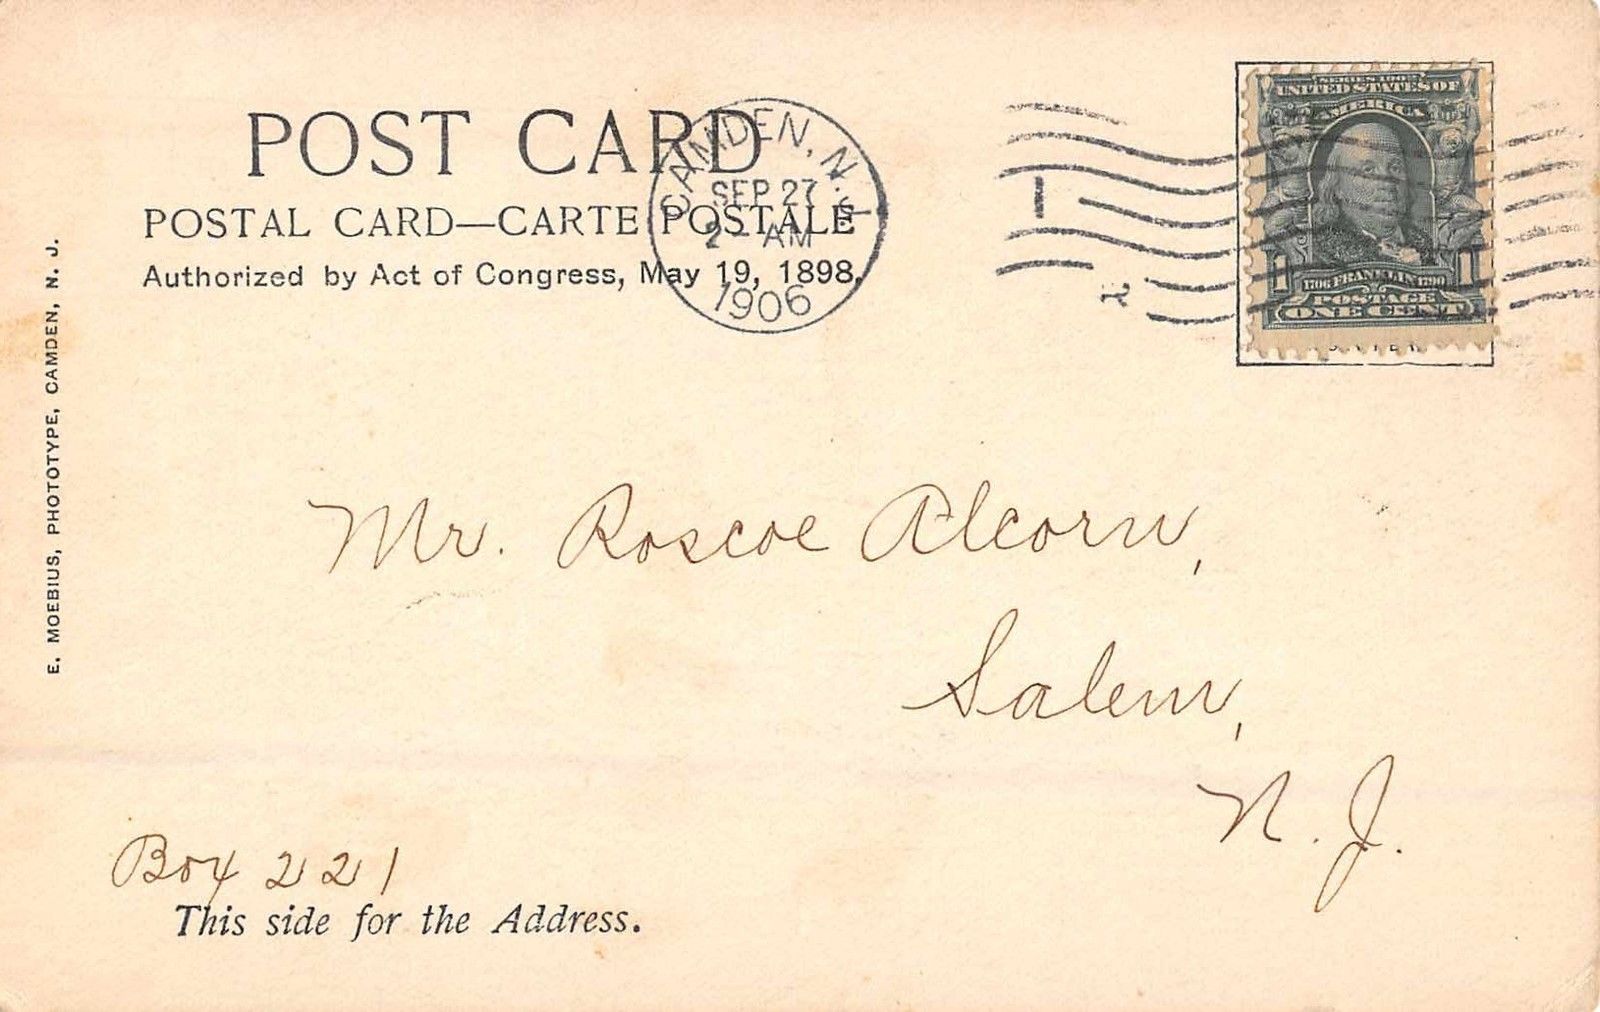 POST CARD
POSTAL CARD—CARTE POSTALE
Authorized by Act of Congress, May 19, 1898.
CAMDEN, N.J.
SEP 27
2 - AM
1906
SERIES 1902
UNITED STATES OF
AMERICA
1 1
1706 FRANKLIN 1790
POSTAGE
ONE CENT
E. MOEBIUS, PHOTOTYPE, CAMDEN, N. J.
Mr. Roscoe Alcorn,
Salem,
N. J.
Box 221
This side for the Address.